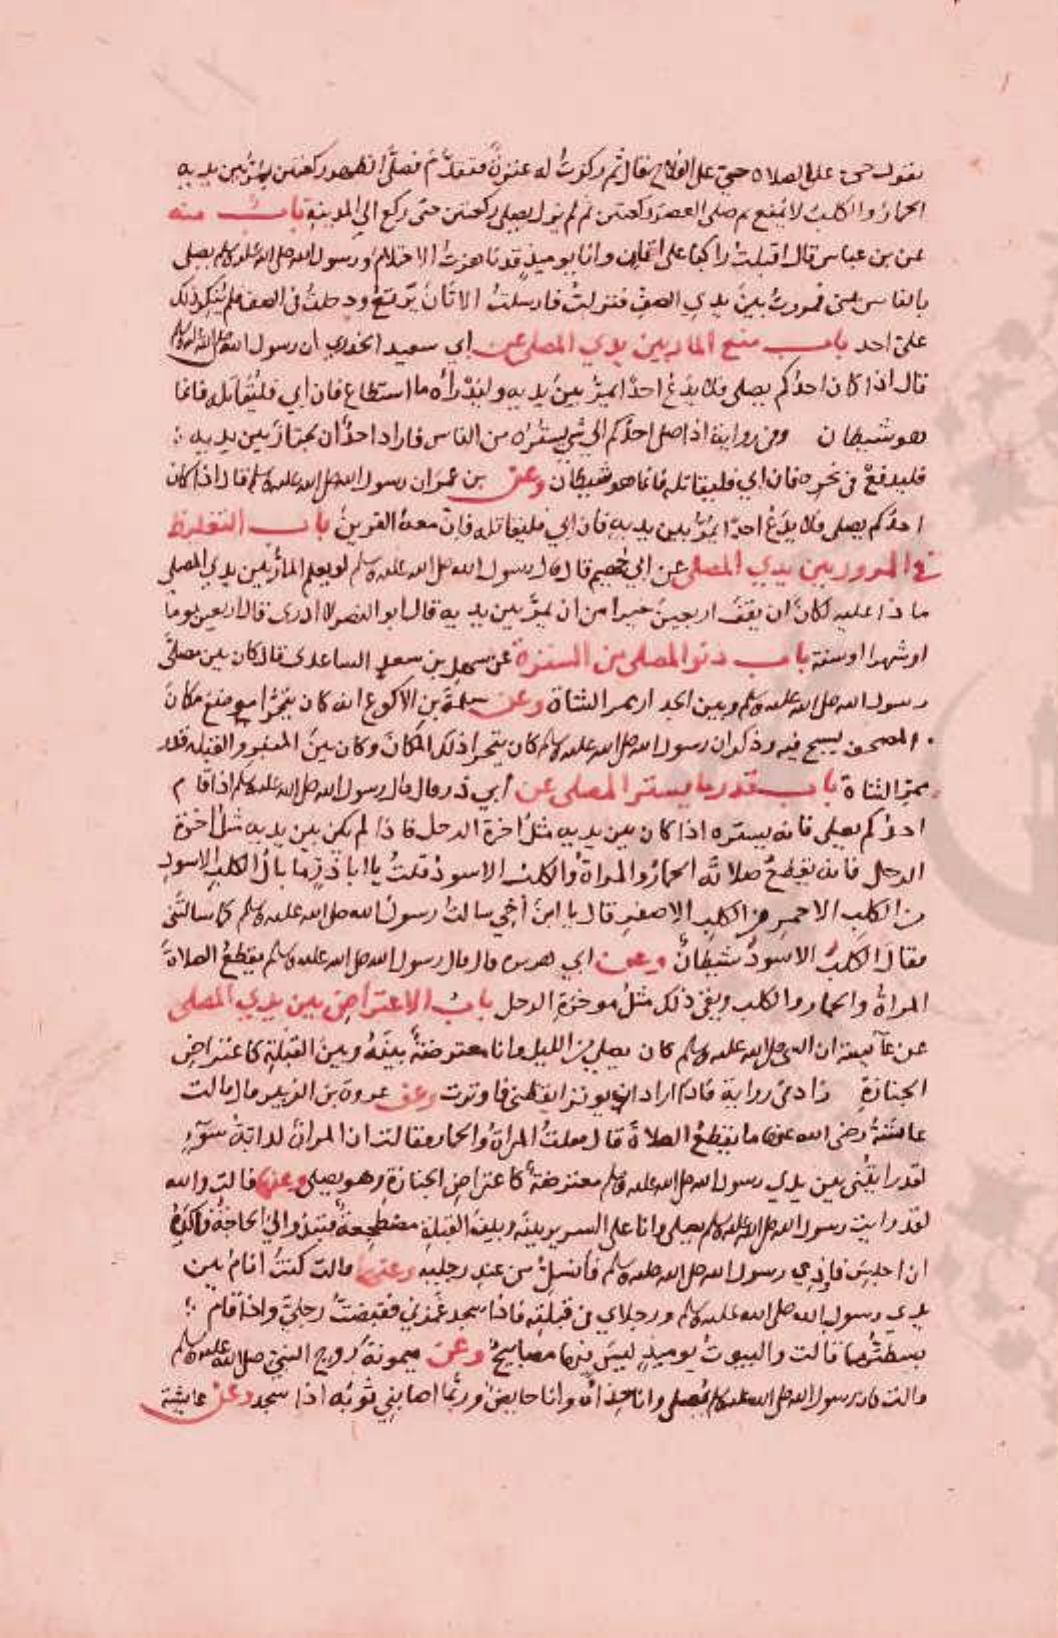 يقول حي على الصلاة حي على الفلاح قال ثم ركزت له عنزة فتقدم فصلى الظهر ركعتين يمر بين يديه
الحمار والكلب لا يمنع ثم صلى العصر ركعتين ثم لم يزل يصلي ركعتين حتى رجع الي المدينة باب منه
عن بن عباس قال اقبلت راكبا على اتان وانا يوميذ قد ناهزت الاحتلام ورسول الله صلى الله عليه وسلم يصلى
بالناس بمنى فمررت بين يدي الصف فنزلت فارسلت الاتان ترتع ودخلت في الصف فلم ينكر ذلك
على احد باب منع المار بين يدي المصلى عن ابي سعيد الخدري ان رسول الله صلى الله عليه وسلم
قال اذا كان احدكم يصلى فلا يدع احدا يمر بين يديه وليدرأه ما استطاع فان ابي فليقاتله فانما
هو شيطان وفي رواية اذا صلى احدكم الى شي يستره من الناس فاراد احد ان يجتاز بين يديه
فليدفع في نحره فان ابي فليقاتله فانما هو شيطان وعن بن عمر ان رسول الله صلى الله عليه وسلم قال اذا كان
احدكم يصلى فلا يدع احدا يمر بين يديه فان ابي فليقاتله فان معه القرين باب التغليظ
في المرور بين يدي المصلى عن ابي جهيم قال قال رسول الله صلى الله عليه وسلم لو يعلم المار بين يدي المصلي
ما ذا عليه لكان ان يقف اربعين خيرا من ان يمر بين يديه قال ابو النضر لا ادرى قال اربعين يوما
او شهرا او سنة باب دنو المصلى من السترة عن سهل بن سعد الساعدى قال كان بين مصلى
رسول الله صلى الله عليه وسلم وبين الجدار ممر الشاة وعن سلمة بن الاكوع انه كان يتحرا موضع مكان
المصحف يسبح فيه وذكر ان رسول الله صلى الله عليه وسلم كان يتحرا ذلك المكان وكان بين المنبر والقبلة قدر
ممر الشاة باب قدر ما يستر المصلى عن أبي ذر قال قال رسول الله صلى الله عليه وسلم اذا قام
احدكم يصلى فانه يستره اذا كان بين يديه مثل اخرة الرحل فاذا لم يكن بين يديه مثل أخرة
الرحل فانه يقطع صلاته الحمار والمراة والكلب الاسود قلت يا ابا ذر ما بال الكلب الاسود
من الكلب الاحمر من الكلب الاصفر قال يا ابن أخي سالت رسول الله صلى الله عليه وسلم كما سالتني
فقال الكلب الاسود شيطان وعن ابي هريره قال قال رسول الله صلى الله عليه وسلم يقطع الصلاة
المراة والحمار والكلب ويقي ذلك مثل موخرة الرحل باب الاعتراض بين يدي المصلى
عن عآئشة ان النبي صلى الله عليه وسلم كان يصلي من الليل وانا معترضة بينه وبين القبلة كاعتراض
الجنازة زاد في رواية فاذا اراد ان يوتر ايقظني فاوترت وعن عروة بن الزبير قال قالت
عائشة رضى الله عنها ما يقطع الصلاة قال فقلت المراة والحمار فقالت ان المراة لدابة سوء
لقد رايتني بين يدي رسول الله صلى الله عليه وسلم معترضة كاعتراض الجنازة وهو يصلى وعنها قالت والله
لقد رايت رسول الله صلى الله عليه وسلم يصلى وانا على السرير بينه وبين القبلة مضطجعة فتبدو الي الحاجة فاكره
ان اجلس فاوذي رسول الله صلى الله عليه وسلم فانسل من عند رجليه وعنها قالت كنت انام بين
يدي رسول الله صلى الله عليه وسلم ورجلاي في قبلته فاذا سجد غمزني فقبضت رجلي واذا قام
بسطتهما قالت والبيوت يوميذ ليس فيها مصابيح وعن ميمونة زوج النبي صلى الله عليه وسلم
قالت كان رسول الله صلى الله عليه وسلم يصلى وانا حذاه وانا حايض وربما اصابني ثوبه اذا سجد وعن عايشة